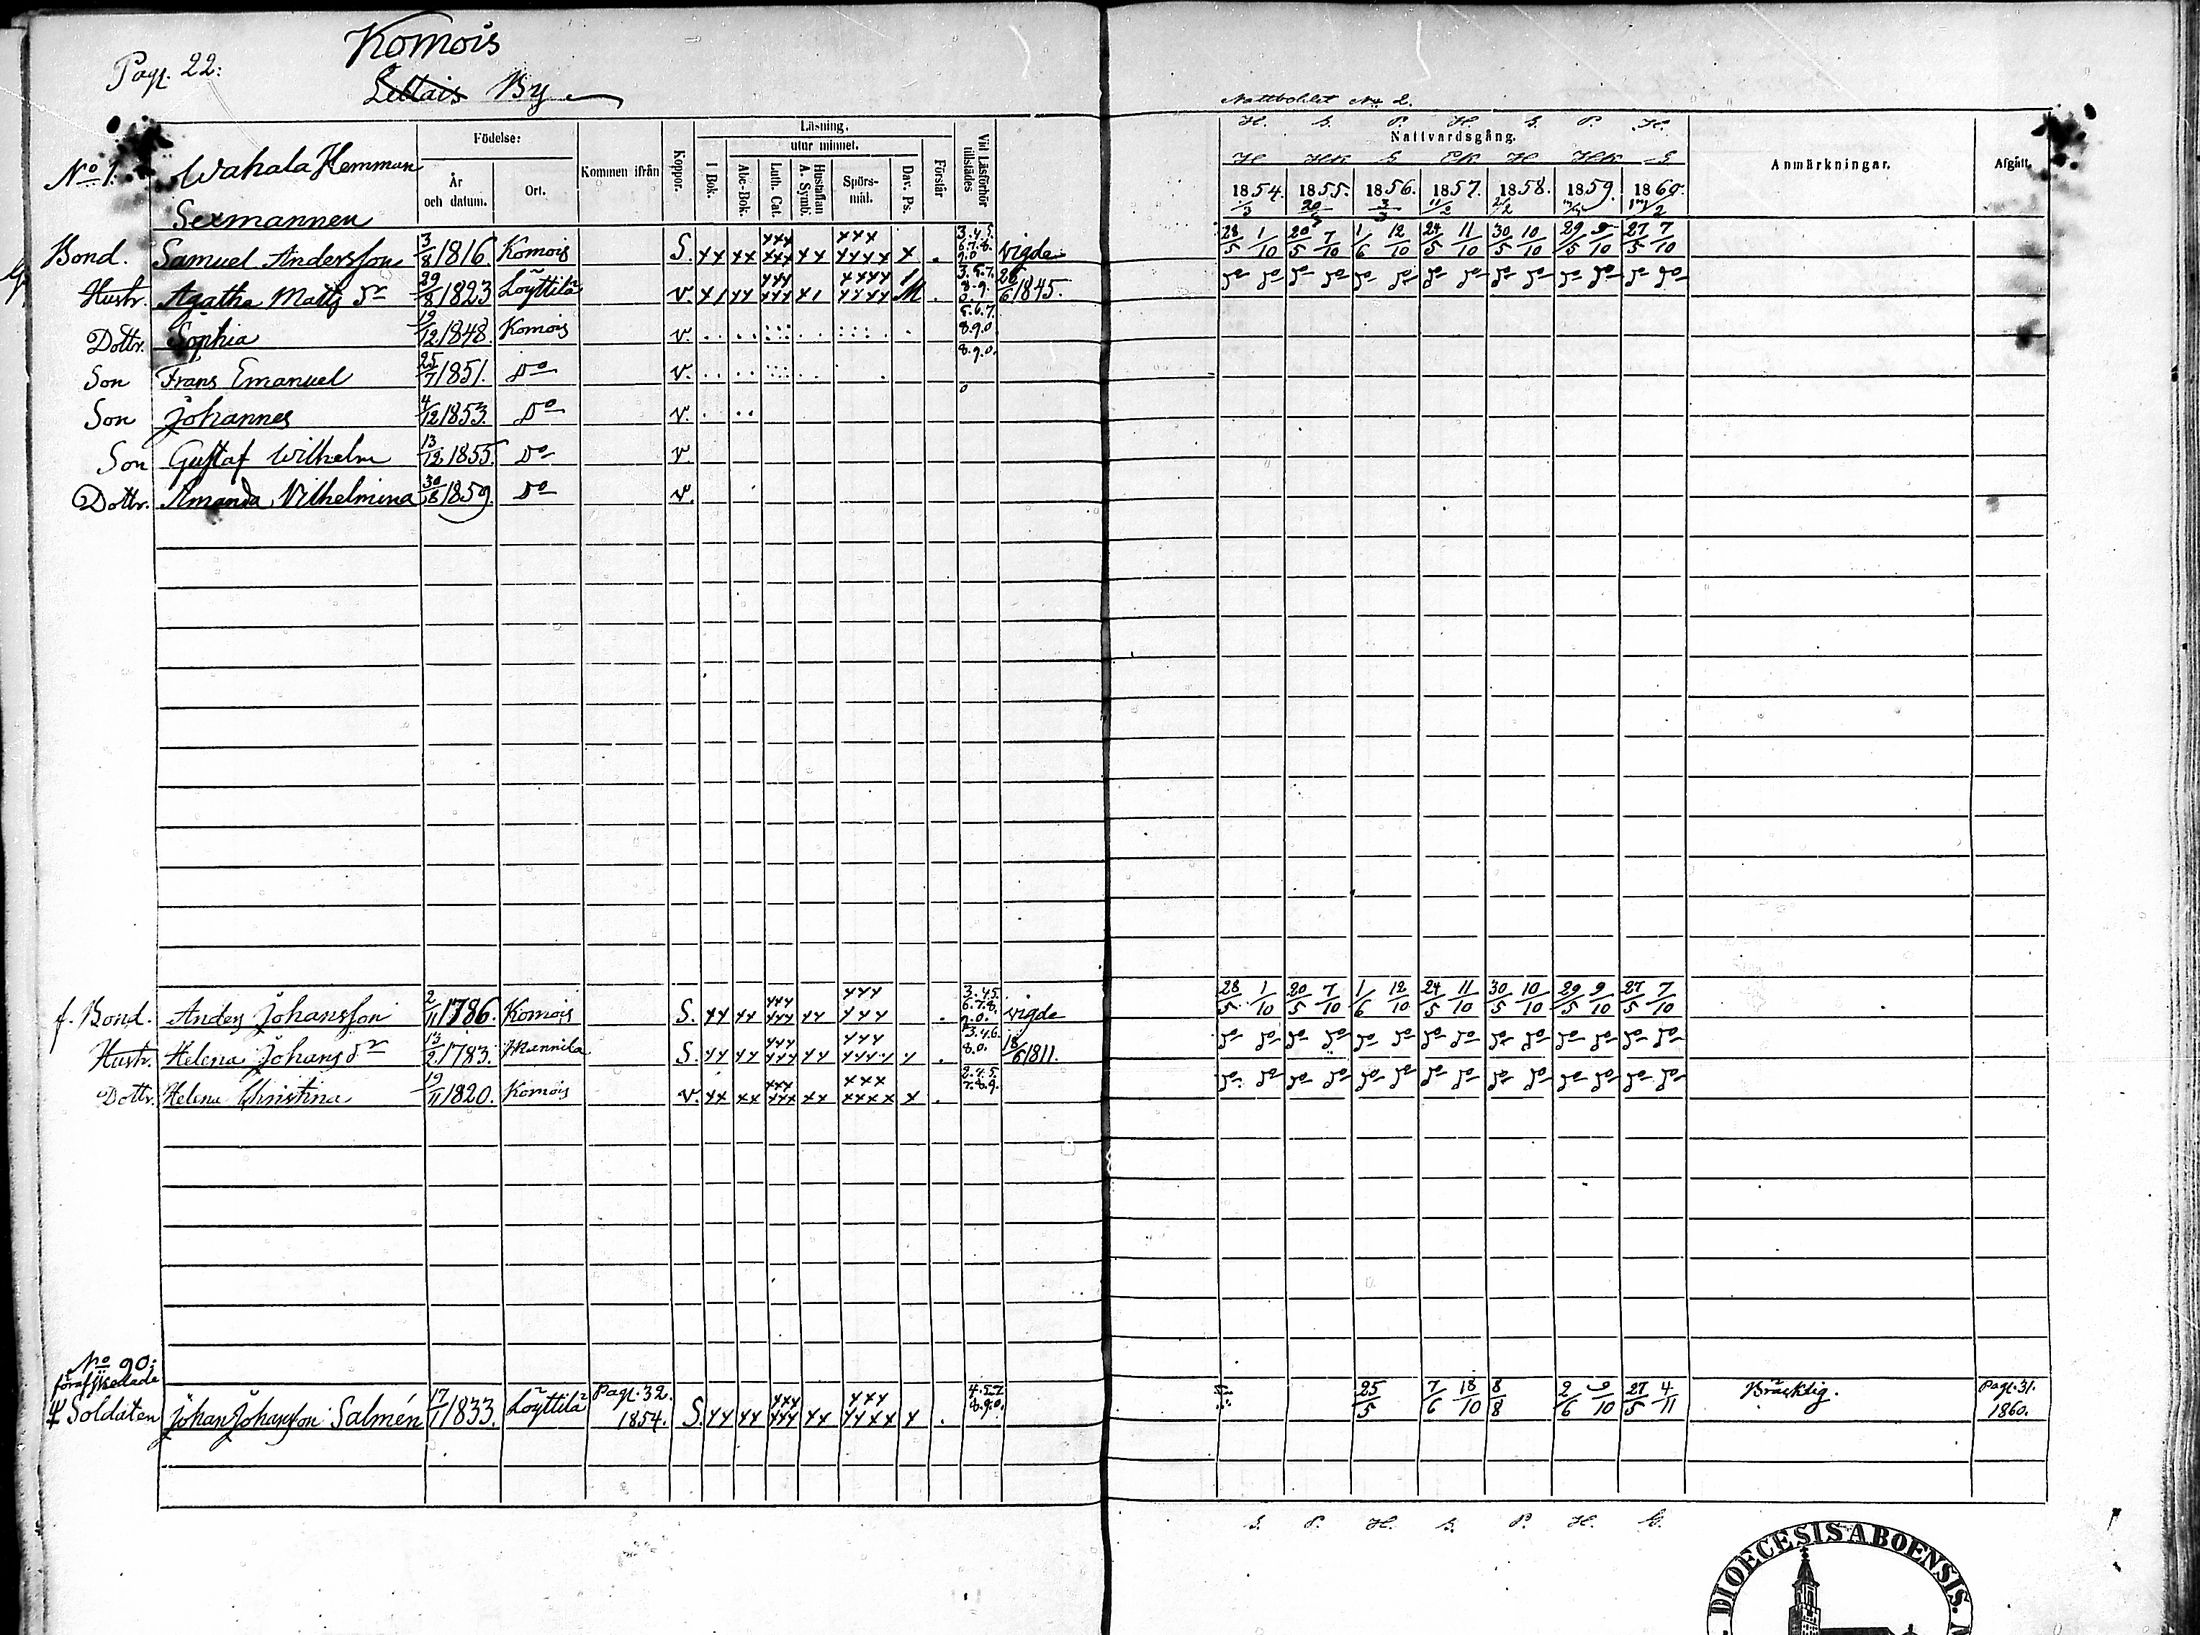 Pag. 22:
Komois
Lellais By
Nattvardsgång.
H. G. P. H. G. P. H.
No 1. Wahala Hemman
Födelse:
År och datum.
Ort.
Kommen ifrån
Koppor.
Läsning.
utur minnet.
I Bok.
Abc-Bok.
Luth. Cat.
Hustaflan A. Symb.
Spörsmål.
Dav. Ps.
Förstår
Vid Läsförhör tillstädes
Anmärkningar.
Afgått.
1854. 1855. 1856. 1857. 1858. 1859. 1860.
Sexmannen
Bond. Samuel Andersson 3/8 1816. Komois S. xx xx xxx xxx xx xxx xxxx x . 3.4.5. 6.7.8. 9.0 vigde 28/5 1/10 20/5 7/10 1/6 12/10 24/5 11/10 30/5 10/10 29/5 9/10 27/5 7/10
Hustr. Agatha Matts Dr 29/8 1823 Löyttilä v. 26/6 1845. Do Do Do Do Do Do Do Do Do Do Do Do Do Do
Dottr. Sophia 19/12 1848. Komois v. 5.6.7. 8.9.0.
Son Frans Emanuel 25/7 1851. Do v. 8.9.0.
Son Johannes 4/12 1853. Do v. 0
Son Gustaf Wilhelm 13/12 1855. Do v
Dottr. Amanda Vilhelmina 30/8 1859. Do v.
f. Bond. Anders Johansson 2/11 1786. Komois S. xx xx xxx xxx xx xxx xxx . 3.4.5. 6.7.8. 9.0. vigde 28/5 1/10 20/5 7/10 1/6 12/10 24/5 11/10 30/5 10/10 29/5 9/10 27/5 7/10
Hustr. Helena Johans Dr 13/2 1783. Mannila S. xx xx xxx xxx xx xxx xxxx x . 3.4.6. 8.0. 18/6 1811. Do Do Do Do Do Do Do Do Do Do Do Do Do Do
Dottr. Helena Christina 19/11 1820. Komois v. xx xx xxx xxx xx xxx xxxx x . 7.8.9. Do Do Do Do Do Do Do Do Do Do Do Do Do Do
No 90:
förafskedade
Soldaten Johan Johansson Salmén 17/1 1833. Löyttilä Pag. 32. 1854. S. xx xx xxx xxx xx xxx xxxx x . 8.9.0. 25/5 7/6 18/10 8/8 2/6 9/10 27/5 4/11 Bräcklig. Pag. 31. 1860.
G. P. H. G. P. H. G.
DIOECESIS ABOENSIS.